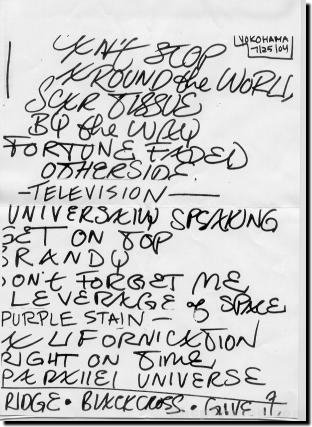 YOKOHAMA
7/25/04
XN'T STOP
AROUND the WORLD
SCAR TISSUE
BY the WAY
FORTUNE FADED
OTHERSIDE
-TELEVISION-
UNIVERSALLY SPEAKING
GET ON TOP
BRANDY
DON'T FORGET ME
LEVERAGE of SPACE
PURPLE STAIN-
CALIFORNICATION
RIGHT ON TIME
PARALLEL UNIVERSE
RIDGE • BLACKCROSS • GIVE IT